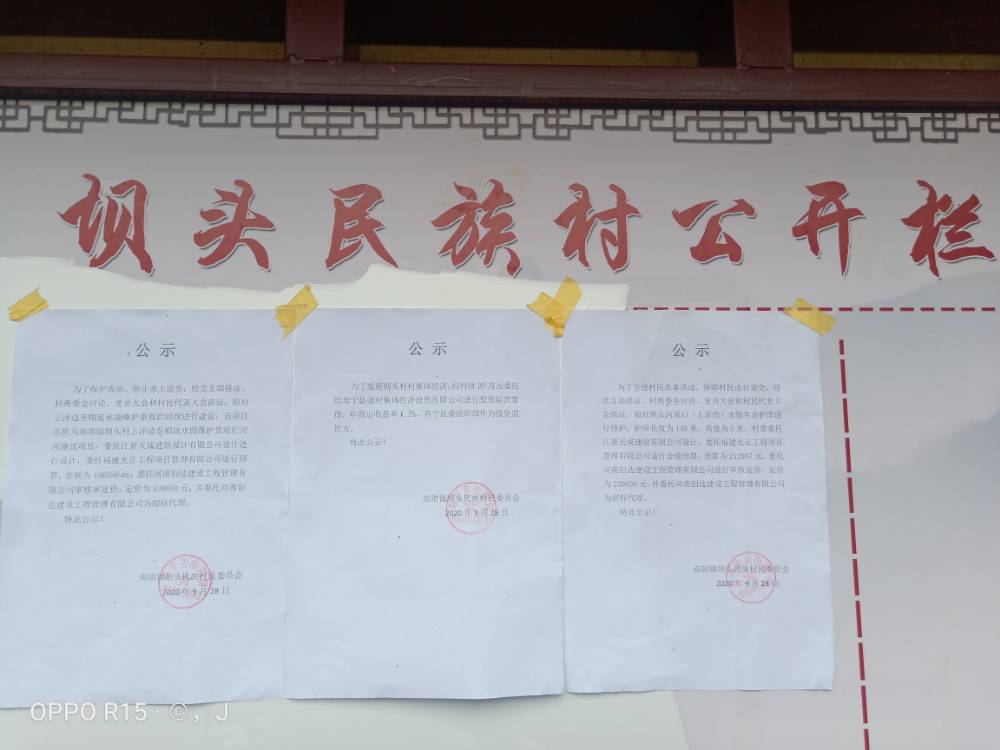 坝头民族村公开栏
公示
为了保护农田、防止水土流失，经党支部提议、
村两委会讨论、党员大会和村民代表大会商议，拟对
上洋边至帽底水毁维护景观拦河坝进行建设，该项目
名称为南阳镇坝头村上洋边至帽底水毁维护景观拦河
坝建设项目，委托江景天成建筑设计有限公司设计进
行设计，委托福建光正工程项目管理有限公司进行预
算，金额为456350元；委托河南创达建设工程管理有
限公司审核审定价，定价为439650元；并委托河南创
达建设工程管理有限公司为招标代理。
特此公示！
南阳镇坝头民族村民委员会
2020年9月28日
公示
为了发展坝头村村集体经济，将村财20万元委托
给寿宁县强村集体经济投资有限公司进行投资运营管
理，年固定收益率7.2%，寿宁县委组织部作为投资监
管方。
特此公示！
南阳镇坝头民族村民委员会
2020年9月28日
公示
为了方便村民农事活动，保障村民出行安全，经
党支部提议、村两委会讨论、党员大会和村民代表大
会商议，拟对坝头河溪口（上游挡）水毁生态护岸进
行修护，护岸长度为140米，高度为3米。村委委托
江景天成建设有限公司设计，委托福建光正工程项目
管理有限公司进行金额预算，预算为252987元，委托
河南创达建设工程管理有限公司进行审核定价，定价
为239650元，并委托河南创达建设工程管理有限公司
为招标代理。
特此公示！
南阳镇坝头民族村民委员会
2020年9月28日
OPPO R15·©，J